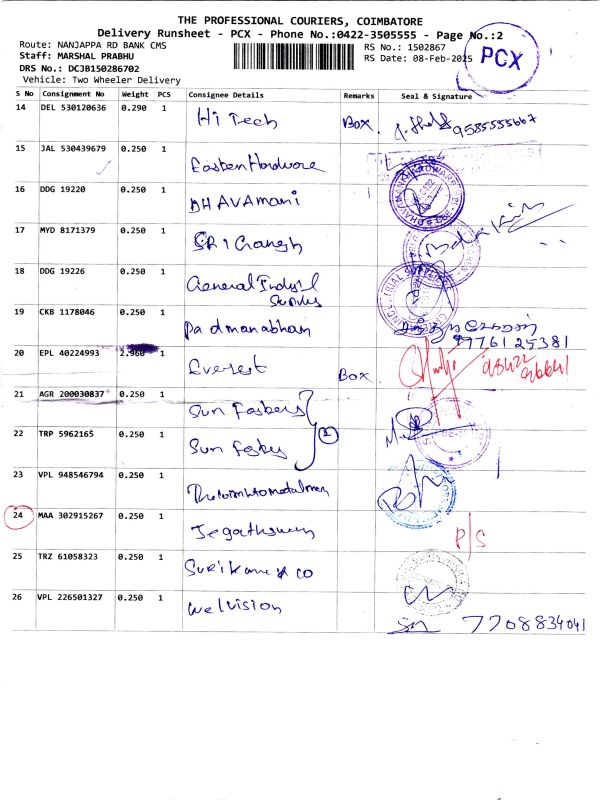 THE PROFESSIONAL COURIERS, COIMBATORE
Delivery Runsheet - PCX - Phone No.:0422-3505555 - Page No.:2
Route: NANJAPPA RD BANK CMS
Staff: MARSHAL PRABHU
DRS No.: DCJB150286702
Vehicle: Two Wheeler Delivery
RS No.: 1502867
RS Date: 08-Feb-2025
PCX
S No Consignment No Weight PCS Consignee Details Remarks Seal & Signature
14 DEL 530120636 0.290 1 Hi Tech Box 9585555667
15 JAL 530439679 0.250 1 Eastern Hardware
16 DDG 19220 0.250 1 BHAVAmani
17 MYD 8171379 0.250 1 SRi Ganesh
18 DDG 19226 0.250 1 General
19 CKB 1178046 0.250 1 Padmanabham 9776125381
20 EPL 40224993 2.960 1 Everest Box
21 AGR 200030837 0.250 1 Sun
22 TRP 5962165 0.250 1 Sun
23 VPL 948546794 0.250 1
24 MAA 302915267 0.250 1 P/S
25 TRZ 61058323 0.250 1 & CO
26 VPL 226501327 0.250 1 Welvision 7708834041